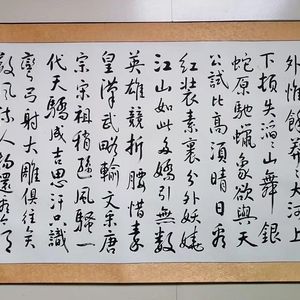 外惟餘莽々大河上
下頓失滔々山舞銀
蛇原馳蠟象欲與天
公試比高須晴日看
紅裝素裹分外妖嬈
江山如此多嬌引無數
英雄競折腰惜秦
皇漢武略輸文采唐
宗宋祖稍遜風騷一
代天驕成吉思汗只識
彎弓射大雕俱往矣
數風流人物還看今